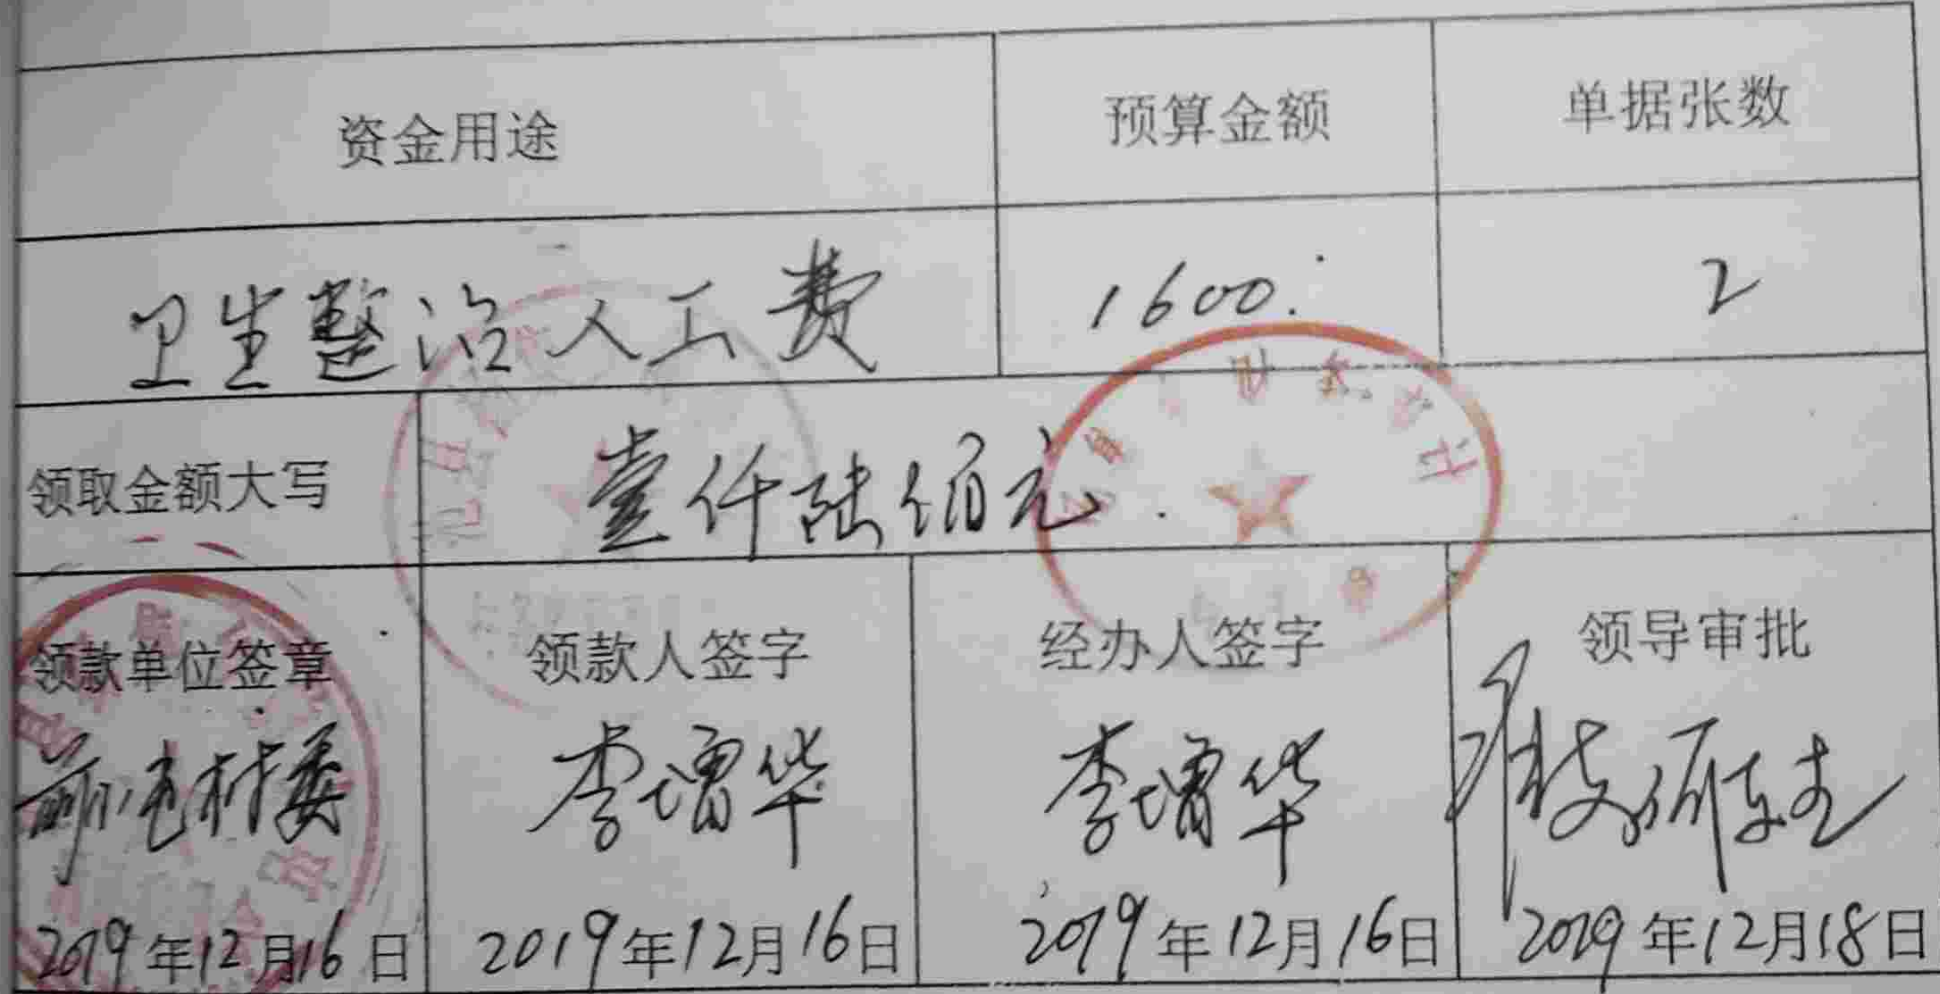 资金用途 预算金额 单据张数
卫生整治人工费 1600. 2
领取金额大写 壹仟陆佰元.
领款单位签章 领款人签字 经办人签字 领导审批
村委 李增华 李增华
2019年12月16日 2019年12月16日 2019年12月16日 2019年12月18日